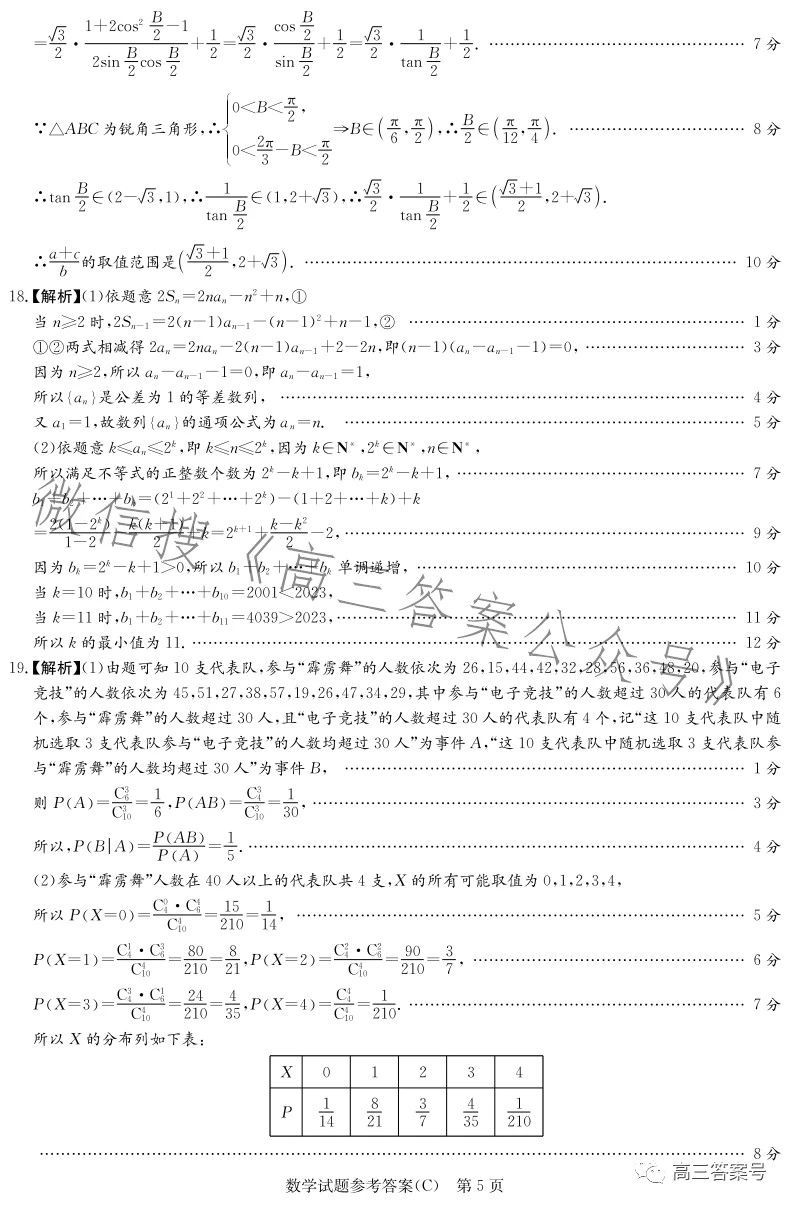 =√3/2·(1+2cos² B/2 -1)/(2sin B/2 cos B/2)+1/2=√3/2·(cos B/2)/(sin B/2)+1/2=√3/2·1/(tan B/2)+1/2. …… 7分
∵△ABC为锐角三角形,∴{0<B<π/2, 0<2π/3-B<π/2 ⇒B∈(π/6,π/2),∴B/2∈(π/12,π/4). …… 8分
∴tan B/2∈(2-√3,1),∴1/(tan B/2)∈(1,2+√3),∴√3/2·1/(tan B/2)+1/2∈((√3+1)/2,2+√3).
∴(a+c)/b的取值范围是((√3+1)/2,2+√3). …… 10分
18.【解析】(1)依题意2Sₙ=2naₙ-n²+n,①
当n≥2时,2Sₙ₋₁=2(n-1)aₙ₋₁-(n-1)²+n-1,② …… 1分
①②两式相减得2aₙ=2naₙ-2(n-1)aₙ₋₁+2-2n,即(n-1)(aₙ-aₙ₋₁-1)=0, …… 3分
因为n≥2,所以aₙ-aₙ₋₁-1=0,即aₙ-aₙ₋₁=1,
所以{aₙ}是公差为1的等差数列, …… 4分
又a₁=1,故数列{aₙ}的通项公式为aₙ=n. …… 5分
(2)依题意k≤aₙ≤2ᵏ,即k≤n≤2ᵏ,因为k∈N*,2ᵏ∈N*,n∈N*,
所以满足不等式的正整数个数为2ᵏ-k+1,即bₖ=2ᵏ-k+1, …… 7分
b₁+b₂+…+bₖ=(2¹+2²+…+2ᵏ)-(1+2+…+k)+k
=2(1-2ᵏ)/(1-2)-k(k+1)/2+k=2ᵏ⁺¹+(k-k²)/2-2, …… 9分
因为bₖ=2ᵏ-k+1>0,所以b₁+b₂+…+bₖ单调递增, …… 10分
当k=10时,b₁+b₂+…+b₁₀=2001<2023,
当k=11时,b₁+b₂+…+b₁₁=4039>2023, …… 11分
所以k的最小值为11. …… 12分
19.【解析】(1)由题可知10支代表队,参与“霹雳舞”的人数依次为26,15,44,42,32,28,56,36,48,20,参与“电子
竞技”的人数依次为45,51,27,38,57,19,26,47,34,29,其中参与“电子竞技”的人数超过30人的代表队有6
个,参与“霹雳舞”的人数超过30人,且“电子竞技”的人数超过30人的代表队有4个,记“这10支代表队中随
机选取3支代表队参与“电子竞技”的人数均超过30人”为事件A,“这10支代表队中随机选取3支代表队参
与“霹雳舞”的人数均超过30人”为事件B, …… 1分
则P(A)=C₆³/C₁₀³=1/6,P(AB)=C₄³/C₁₀³=1/30, …… 3分
所以,P(B|A)=P(AB)/P(A)=1/5. …… 4分
(2)参与“霹雳舞”人数在40人以上的代表队共4支,X的所有可能取值为0,1,2,3,4,
所以P(X=0)=C₄⁰·C₆⁴/C₁₀⁴=15/210=1/14, …… 5分
P(X=1)=C₄¹·C₆³/C₁₀⁴=80/210=8/21,P(X=2)=C₄²·C₆²/C₁₀⁴=90/210=3/7, …… 6分
P(X=3)=C₄³·C₆¹/C₁₀⁴=24/210=4/35,P(X=4)=C₄⁴/C₁₀⁴=1/210. …… 7分
所以X的分布列如下表:
X 0 1 2 3 4
P 1/14 8/21 3/7 4/35 1/210
…… 8分
数学试题参考答案(C) 第5页
微信搜《高三答案公众号》
高三答案号